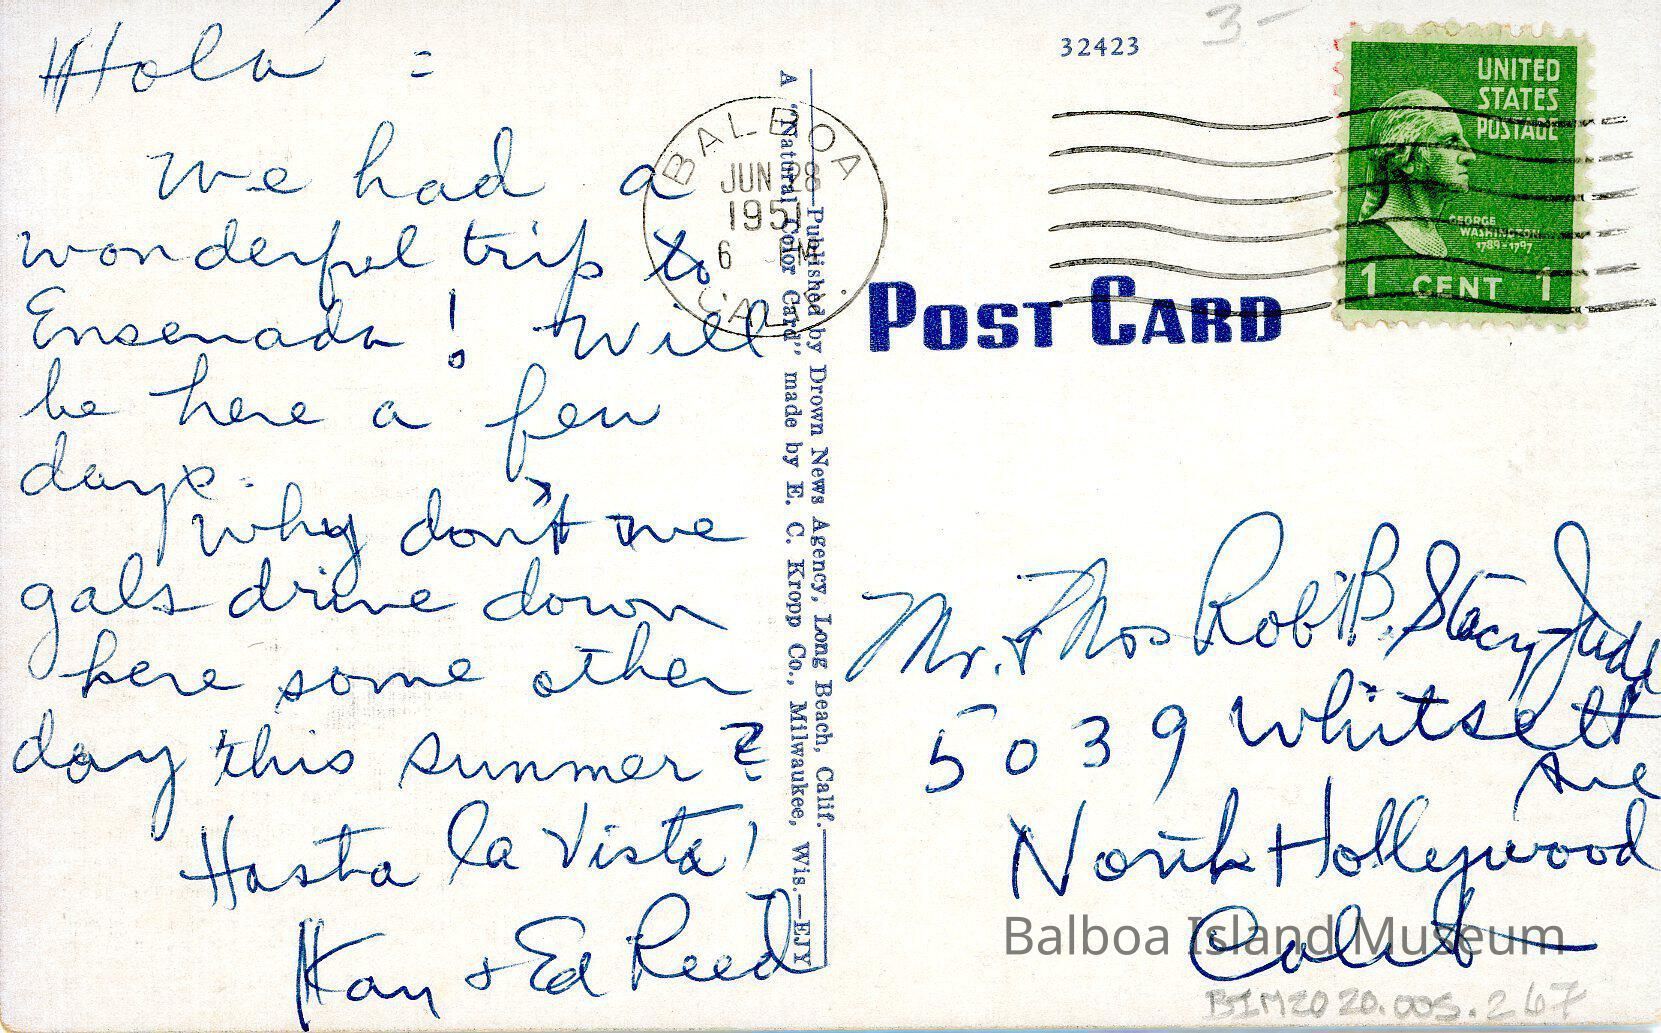 Hola =
We had a
wonderful trip to
Ensenada! Will
be here a few
days.
Why don't we
gals drive down
here some other
day this summer?
Hasta la Vista!
Kay & Ed Reed
BALBOA
JUN 28
1951
6 PM
CAL
Published by Drown News Agency, Long Beach, Calif.
A "Natural Color Card" made by E. C. Kropp Co., Milwaukee, Wis.—EJY
32423
3-
UNITED
STATES
POSTAGE
GEORGE
WASHINGTON
1789-1797
1 CENT 1
POST CARD
Mr. & Mrs Rob't B. Stacy-Judd
5039 Whitsett
Ave
North Hollywood
Calif
Balboa Island Museum
BIM2020.005.267